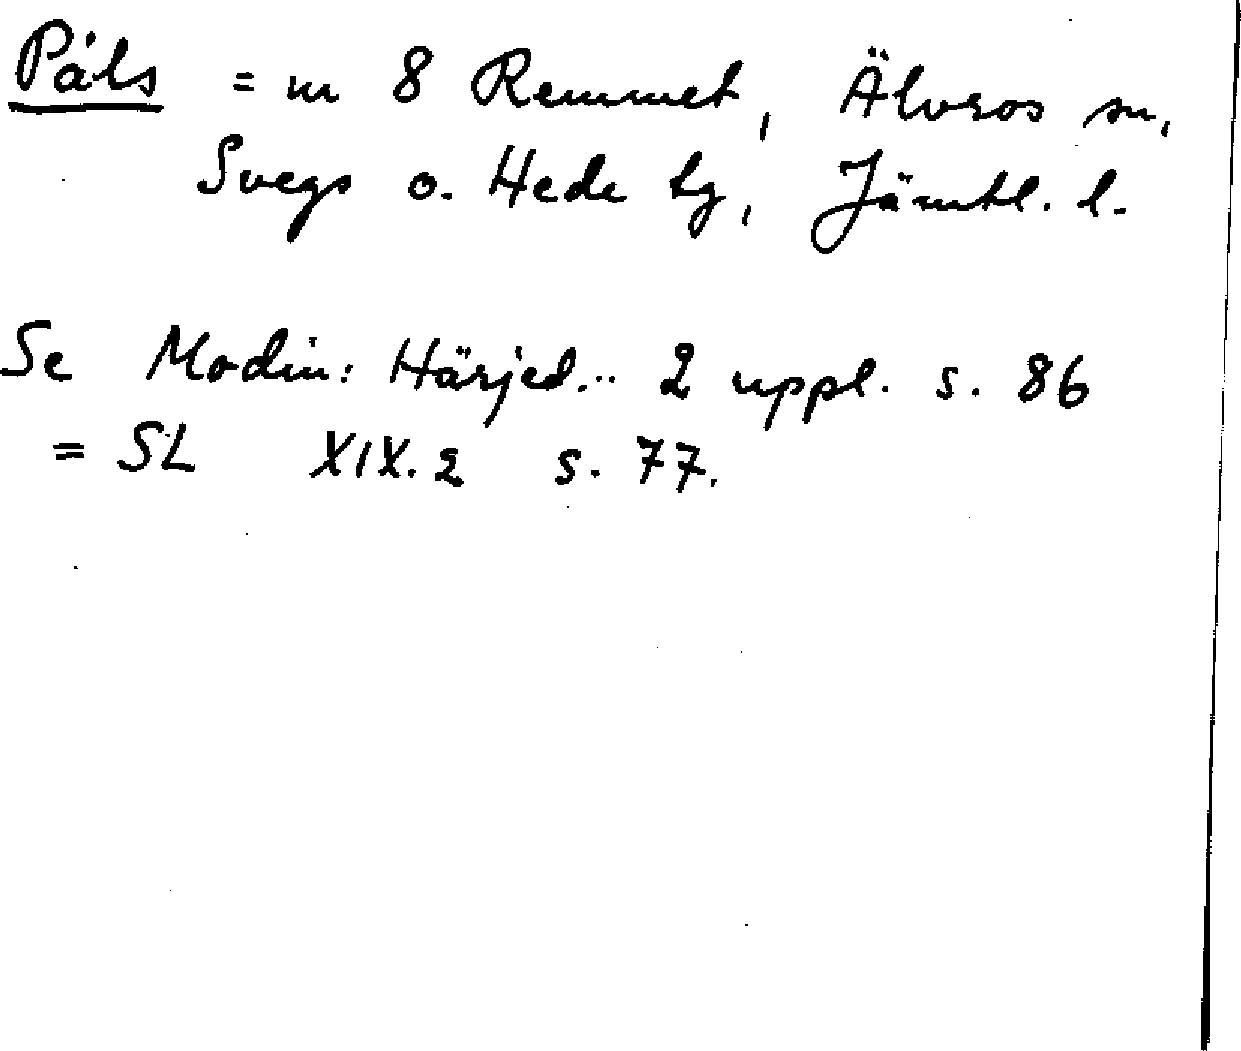 Påls = nr 8 Remmet, Älvros sn,
Svegs o. Hede tg, Jämtl. l.
Se Modin: Härjed... 2 uppl. s. 86
= SL XIX.2 s. 77.